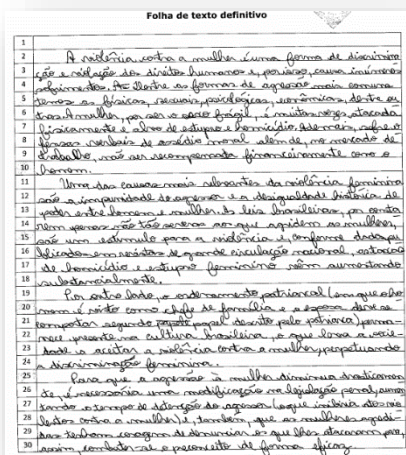 Folha de texto definitivo
1
2 A violência contra a mulher é uma forma de discrimina
3 ção e violação dos direitos humanos e, por isso, causa inúmeros
4 sofrimentos. Dentre as formas de agressão mais comuns
5 temos as físicas, sexuais, psicológicas, econômicas, dentre ou
6 tras. A mulher, por ser o sexo frágil, é muitas vezes atacada
7 fisicamente e alvo de estupro e homicídio. Ademais, sofre o
8 fensas verbais de assédio moral além de, no mercado de
9 trabalho, não ser recompensada financeiramente como o
10 homem.
11 Uma das causas mais relevantes da violência feminina
12 são a impunidade do agressor e a desigualdade histórica de
13 poder entre homem e mulher. As leis brasileiras, por conta
14 rem penas não tão severas aos que agridem as mulheres,
15 são um estímulo para a violência e, conforme dados pu
16 blicados em revistas de grande circulação nacional, as taxas
17 de homicídio e estupro feminino vêm aumentando
18 substancialmente.
19 Por outro lado, o ordenamento patriarcal (em que o ho
20 mem é visto como chefe de família e a esposa deve se
21 comportar segundo papel descrito pelo patriarca) perma
22 nece presente na cultura brasileira, o que leva a socie
23 dade a aceitar a violência contra a mulher, perpetuando
24 a discriminação feminina.
25 Para que a agressão à mulher diminua drasticamen
26 te, é necessária uma modificação na legislação penal, aumen
27 tando o tempo de detenção do agressor (o que inibiria atos vio
28 lentos contra a mulher) e, também, que as mulheres agredi
29 das tenham coragem de denunciar o que lhes atacaram para,
30 assim, combater-se o preconceito de forma eficaz.